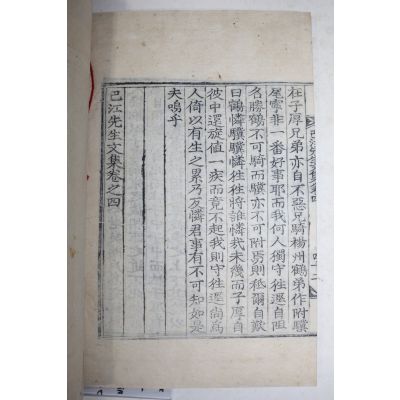 杜子厚兄弟亦自不惡兄騎楊州鶴弟作附驥
尾寧非一番好事耶而我何人獨守徃逕自阻
名勝鶴不可騎而驥亦不可附焉則秪爾自歎
曰鶴憐驥驥憐徃徃將誰憐哉未幾而子厚自
彼中還旋值一疾而竟不起我則守徃逕尚爲
人倚以有生之累乃反憐君事有不可知如是
夫嗚乎
巴江先生文集卷之四